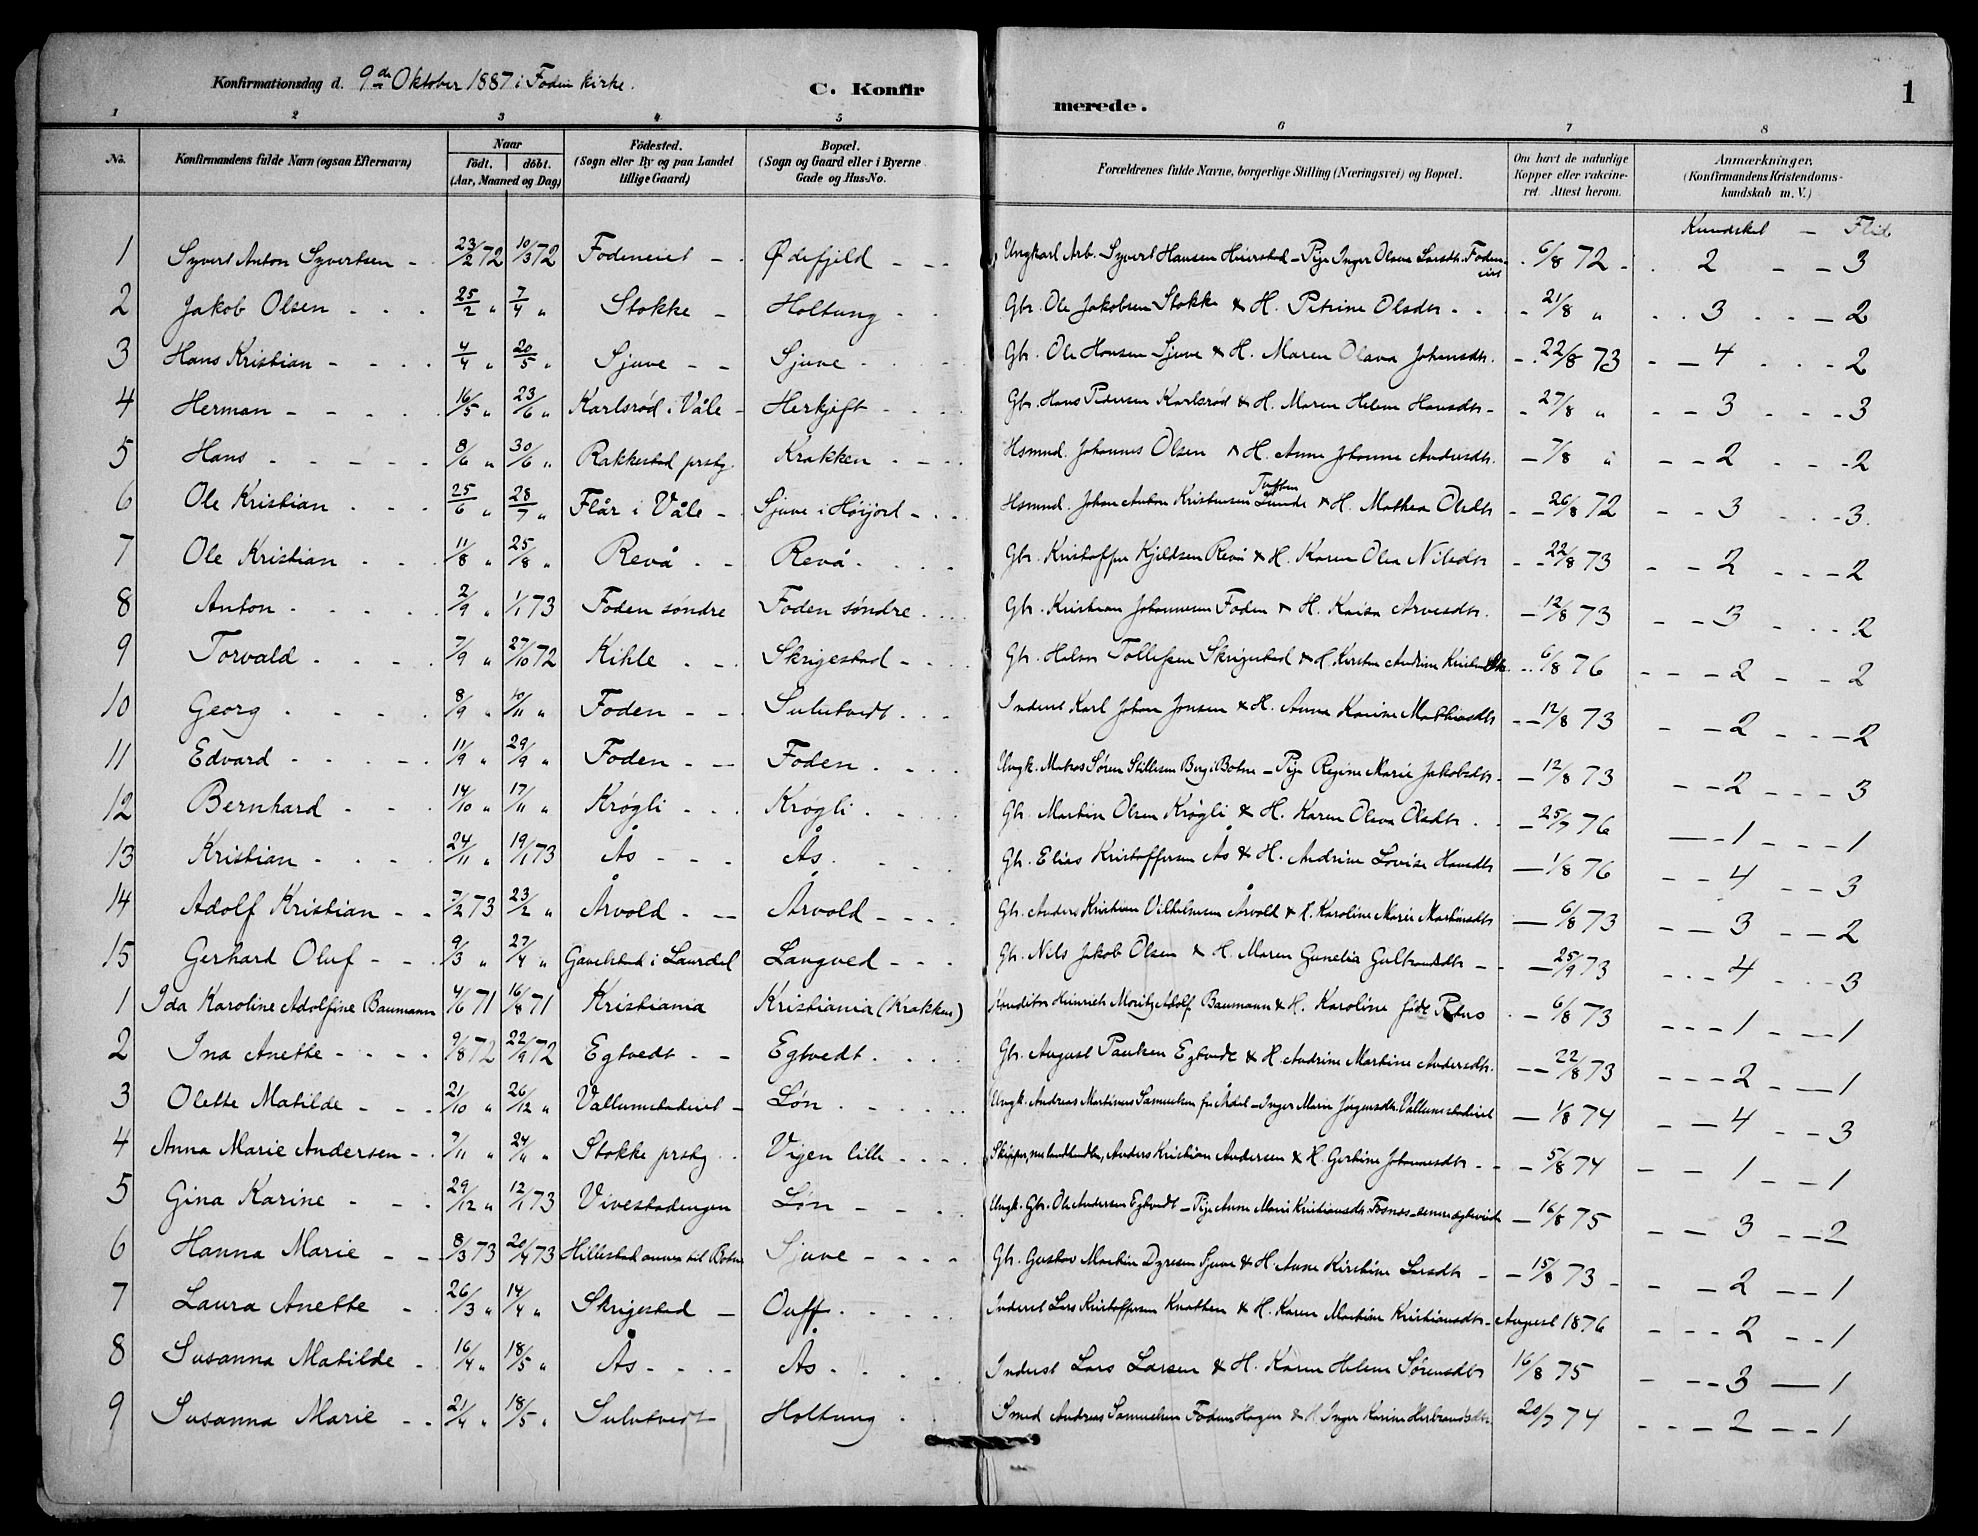 Konfirmationsdag d. 9de Oktober 1887 i Foden kirke.
C. Konfirmerede.
1
1 2 3 4 5 6 7 8
No. Konfirmandens fulde Navn (ogsaa Efternavn) Naar födt. döbt. (Aar, Maaned og Dag) Födested. (Sogn eller By og paa Landet tillige Gaard) Bopæl. (Sogn og Gaard eller i Byerne Gade og Hus-No. Forældrenes fulde Navne, borgerlige Stilling (Næringsvei) og Bopæl. Om havt de naturlige Kopper eller vakcineret. Attest herom. Anmærkninger, (Konfirmandens Kristendomskundskab m. V.)
Kundskab — Flid
1 Syvert Anton Syvertsen 23/2 72 10/3 72 Fodeneiet Ødefjeld Ungkarl Arb. Syvert Hansen Hierstad - Pige Inger Olava Larsdtr. Fodeneiet 6/8 72 2 3
2 Jakob Olsen 25/2 " 7/4 " Stokke Holtung Gbr. Ole Jakobsen Stokke & H. Petrine Olsdtr 21/8 " 3 2
3 Hans Kristian 4/4 " 20/5 " Sjuve Sjuve Gbr. Ole Hansen Sjuve & H. Maren Olava Johansdtr. 22/8 73 4 2
4 Herman 16/5 " 23/6 " Karlsrød i Våle Herkjift Gbr. Hans Pedersen Karlsrød & H. Maren Helene Hansdtr 27/8 " 3 3
5 Hans 8/6 " 30/6 " Rakkestad prstg. Krakken Hsmnd. Johannes Olsen & H. Anne Johanne Andersdtr. 7/8 " 2 2
6 Ole Kristian 25/6 " 28/7 " Flår i Våle Sjuve i Høijord Hsmnd. Johan Anton Kristensen Lunde & H. Mathea Olsdtr 26/8 72 3 3
7 Ole Kristian 11/8 " 25/8 " Revå Revå Gbr. Kristoffer Kjeldsen Revå & H. Karen Olea Nilsdtr 22/8 73 2 2
8 Anton 2/9 " 1/1 73 Foden söndre Foden söndre Gbr. Kristian Johannesen Foden & H. Kaisa Arvesdtr. 12/8 73 3 2
9 Torvald 7/9 " 27/10 72 Kihle Skrigestad Gbr. Halvor Tollefsen Skrigestad & H. Kirsten Andrine 6/8 76 2 2
10 Georg 8/9 " 10/11 " Foden Sulutvedt Inderst Karl Johan Jensen & H. Anna Karine Mathiasdtr 12/8 73 2 2
11 Edvard 11/9 " 29/9 " Foden Foden Ungk. Matros Søren Berg i Botne - Pige Regine Marie Jakobsdtr 12/8 73 2 3
12 Bernhard 14/10 " 17/11 " Krøgli Krøgli Gbr. Martin Olsen Krøgli & H. Karen Olava Olsdtr 25/7 76 1 1
13 Kristian 24/11 " 19/1 73 Ås Ås Gbr. Elias Kristoffersen Ås & H. Andrine Lovise Hansdtr 1/8 76 4 3
14 Adolf Kristian 7/2 73 23/2 " Årvold Årvold Gbr. Anders Kristian Vilhelmsen Årvold & H. Karoline Marie Martinsdtr 6/8 73 3 2
15 Gerhard Oluf 9/3 " 27/4 " Gavelstad i Laurdal Langved Gbr. Nils Jakob Olsen & H. Maren Gunelia Gulbrandsdtr 25/9 73 4 3
1 Ida Karoline Adolfine Baumann 4/6 71 16/8 71 Kristiania Kristiania (Krakken) Konditor Heinrich Moritz Adolf Baumann & H. Karoline født 6/8 73 1 1
2 Ina Anette 9/8 72 22/9 72 Egtvedt Egtvedt Gbr. August Paulsen Egtvedt & H. Andrine Martine Andersdtr. 22/8 73 2 1
3 Olette Matilde 21/10 " 26/12 " Vallumstadeiet Løn Ungk. Andreas Martinus Samuelsen fra Ådal - Inger Marie Jørgensdtr. Vallumstadeiet 1/8 74 4 3
4 Anna Marie Andersen 7/11 " 24/11 " Stokke prstg. Vigen lille Skipper, nu landhandler, Anders Kristian Andersen & H. Gertine Johannesdtr 5/8 74 1 1
5 Gina Karine 29/12 " 12/1 73 Vivestadengen Løn Ungk. Gbr. Ole Andersen Egtvedt - Pige Anne Marie Kristiansdtr. Fosnes - senere ægteviede 16/8 75 3 2
6 Hanna Marie 8/3 73 20/4 73 Hillestad annex til Botne Sjuve Gbr. Gustav Martin Dyresen Sjuve & H. Anne Kirstine Larsdtr 15/8 73 2 1
7 Laura Anette 26/3 " 14/4 " Skrigestad Ouff Inderst Lars Kristoffersen Knatten & H. Karen Martine Kristiansdtr August 1876 2 1
8 Susanna Matilde 16/4 " 18/5 " Ås Ås Inderst Lars Larsen & H. Karen Helene Sørensdtr 16/8 75 3 1
9 Susanna Marie 21/4 " 18/5 " Sulutvedt Holtung Smed Andreas Samuelsen Foden Hagen & H. Inger Karine Herbrandsdtr. 20/7 74 2 1